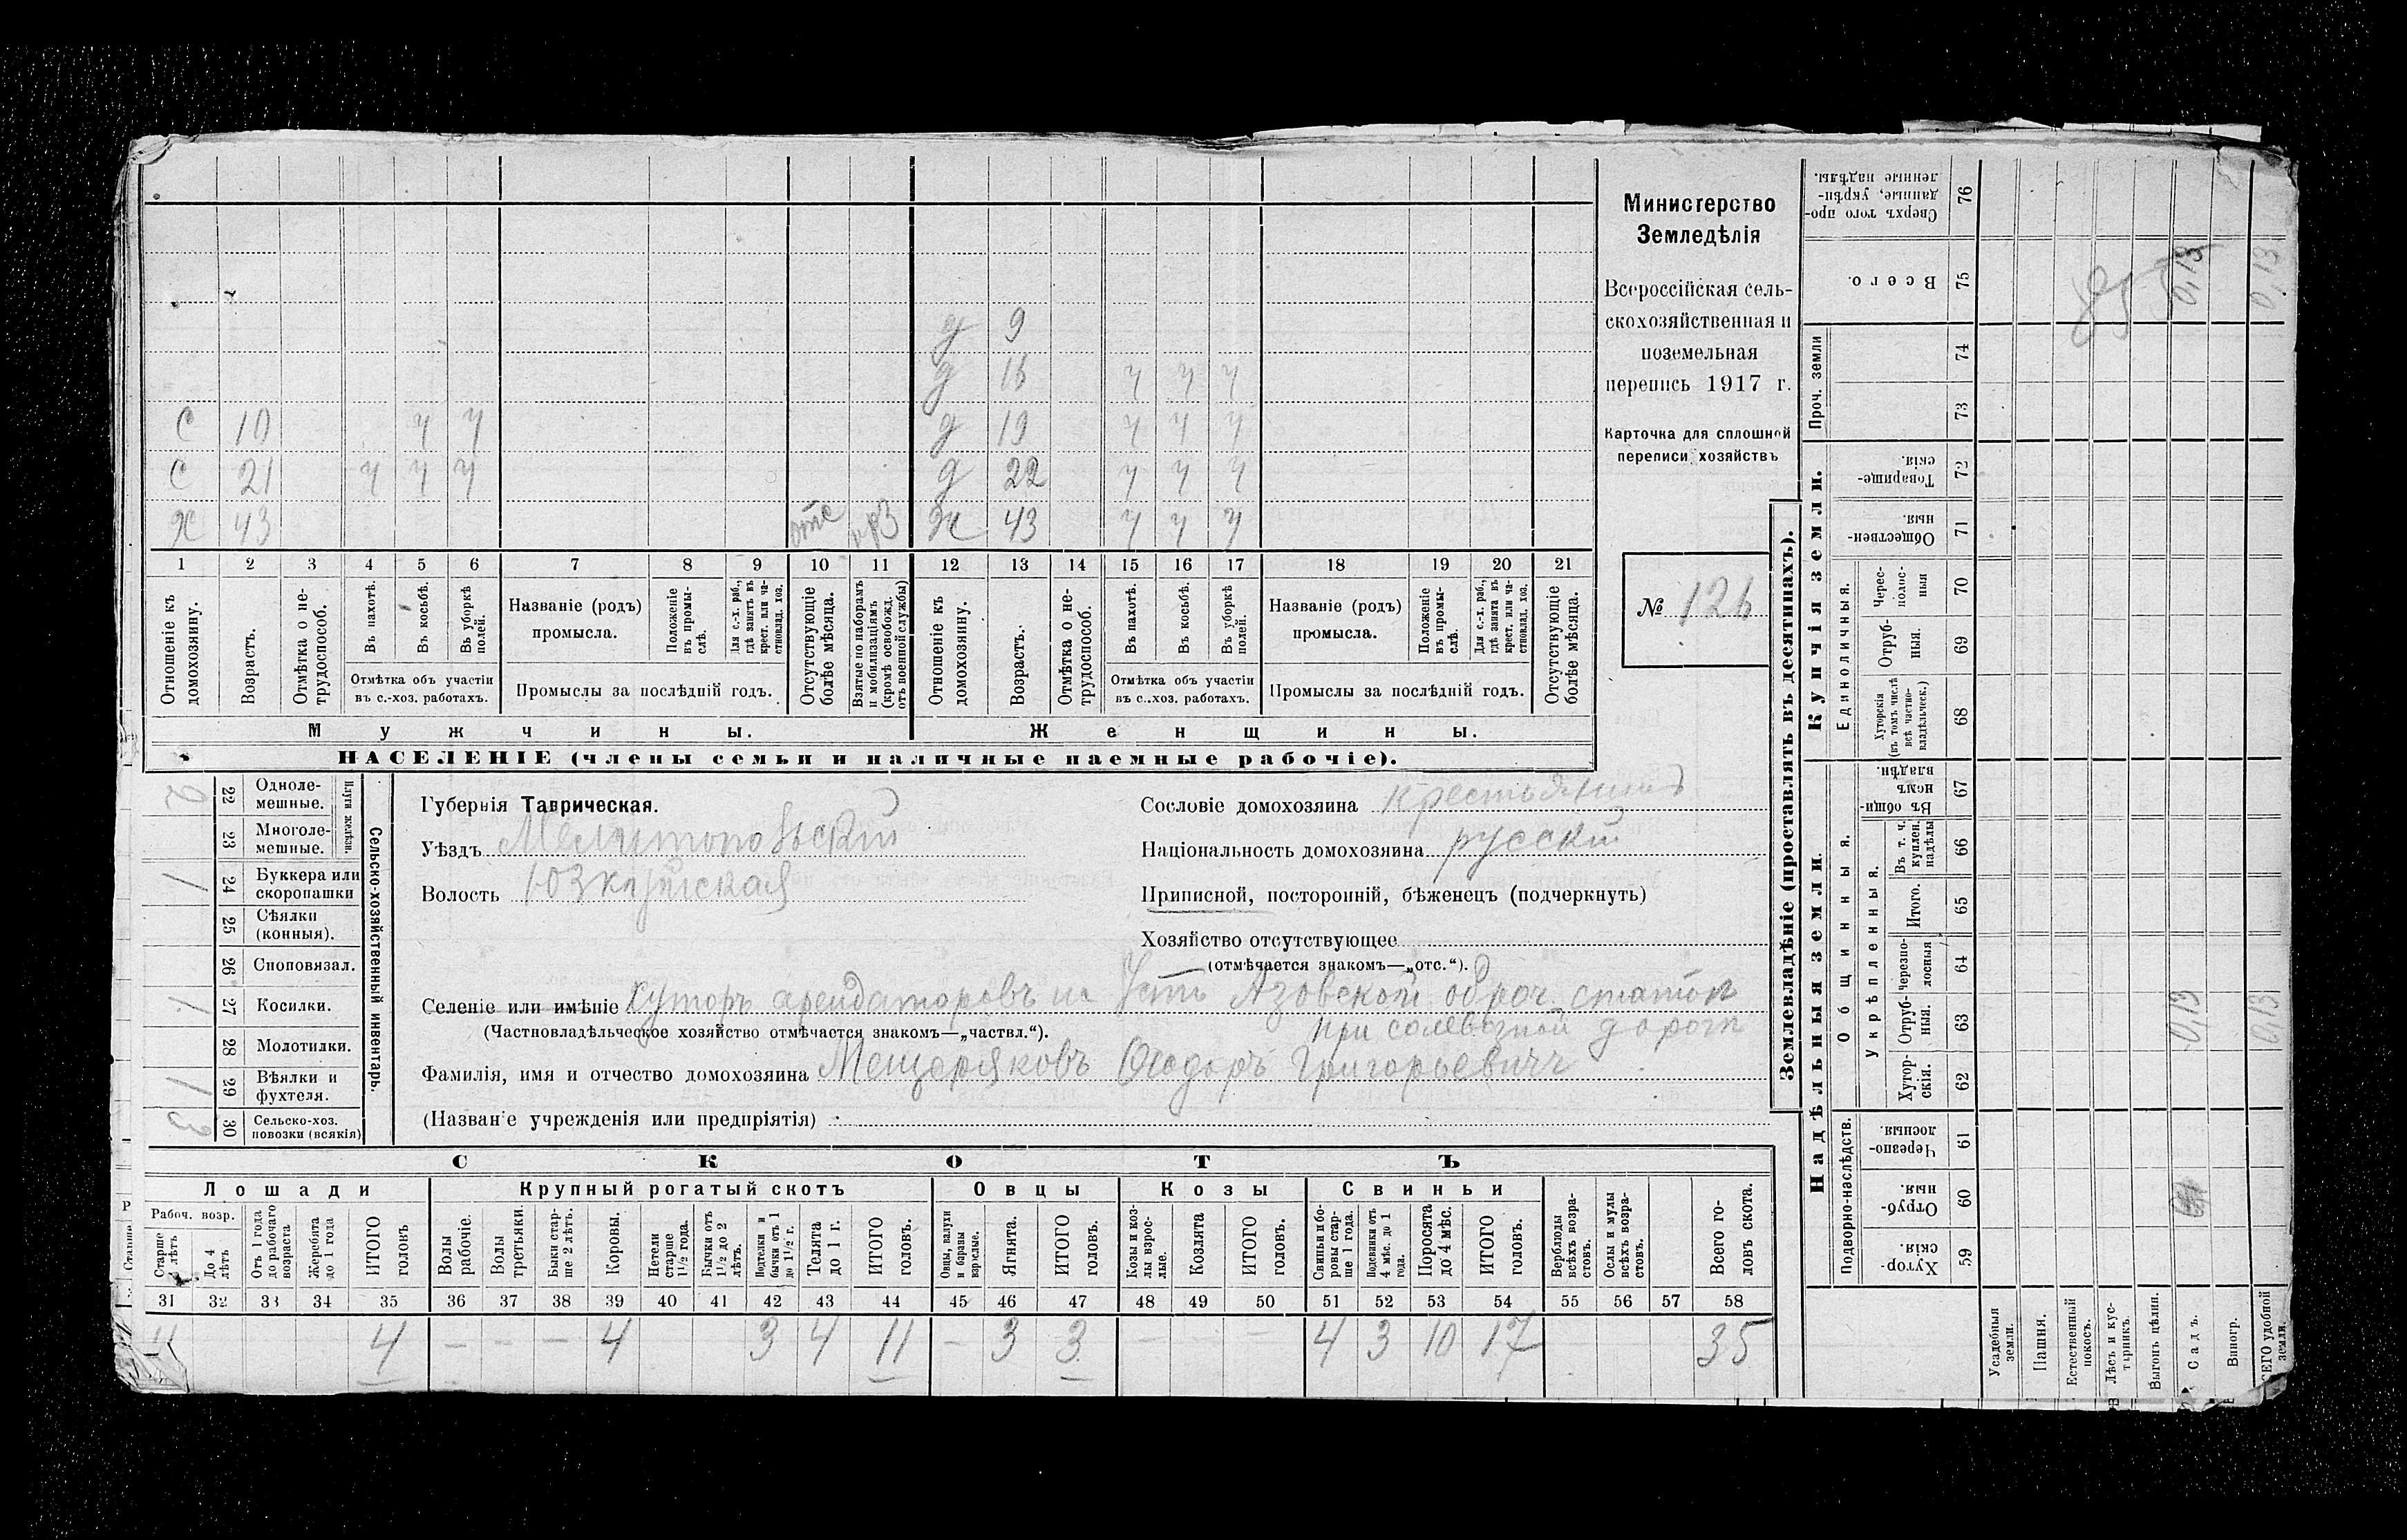 Министерство
Земледѣлія
Всероссійская сель-
скохозяйственная и
поземельная
перепись 1917 г.
Карточка для сплошной
переписи хозяйствъ
№ 126
д 9
д 16 ч ч ч
с 10 ч ч д 19 ч ч ч
с 21 ч ч ч д 22 ч ч ч
х 43 отс ж 43 ч ч ч
1 2 3 4 5 6 7 8 9 10 11 12 13 14 15 16 17 18 19 20 21
Отношеніе къ домохозяину.
Возрастъ.
Отмѣтка о не-трудоспособ.
Въ пахотѣ.
Въ косьбѣ.
Въ уборкѣ полей.
Отмѣтка объ участіи
въ с.-хоз. работахъ.
Названіе (родъ)
промысла.
Положеніе въ промы-слѣ.
Для с.-х. раб., гдѣ занятъ въ крест. или ча-стновлад. хоз.
Промыслы за послѣдній годъ.
Отсутствующіе болѣе мѣсяца.
Взятые по наборамъ и мобилизаціямъ (кромѣ освобожд. отъ военной службы)
Отношеніе къ домохозяину.
Возрастъ.
Отмѣтка о не-трудоспособ.
Въ пахотѣ.
Въ косьбѣ.
Въ уборкѣ полей.
Отмѣтка объ участіи
въ с..хоз. работахъ.
Названіе (родъ)
промысла.
Положеніе въ промы-слѣ.
Для с.-х. раб., гдѣ занята въ крест. или ча-стновлад. хоз.
Промыслы за послѣдній годъ.
Отсутствующіе болѣе мѣсяца.
Мужчины. Женщины.
НАСЕЛЕНІЕ (члены семьи и наличные наемные рабочіе).
Сельско-хозяйственный инвентарь.
Плуги желѣзн.
2 22 Одноле-мешные.
23 Многоле-мешные.
1 24 Буккера или скоропашки
25 Сѣялки (конныя).
26 Сноповязал.
1 27 Косилки.
28 Молотилки.
1 29 Вѣялки и фухтеля.
3 30 Сельско-хоз. повозки (всякія)
Губернія Таврическая.
Уѣздъ Мелитопольский
Волость Юзкуйская
Сословіе домохозяина крестьянинъ
Національность домохозяина русский
Приписной, посторонній, бѣженецъ (подчеркнуть)
Хозяйство отсутствующее
(отмѣчается знакомъ—„отс.“).
Селеніе или имѣніе хуторъ арендаторовъ на Азовской оброч. статьи
(Частновладѣльческое хозяйство отмѣчается знакомъ—„частвл.“). при дороги
Фамилія, имя и отчество домохозяина Мещеряковъ Ѳеодоръ Григорьевичъ
(Названіе учрежденія или предпріятія)
СКОТЪ
Лошади Крупный рогатый скотъ Овцы Козы Свиньи
Рабоч. возр.
Старше 4 лѣтъ
До 4 лѣтъ
Отъ 1 года до рабочаго возраста
Жеребята до 1 года
ИТОГО головъ
Волы рабочіе.
Волы третьяки.
Быки стар-ше 2 лѣтъ.
Коровы.
Нетели старше 1½ года.
Бычки отъ 1½ до 2 лѣтъ.
Подтелки и бычки отъ 1 до 1½ г.
Телята до 1 г.
ИТОГО головъ.
Овцы, валухи и бараны взрослые.
Ягнята.
ИТОГО головъ.
Козы и коз-лы взрос-лые.
Козлята
ИТОГО головъ.
Свиньи и бо-ровы стар-ше 1 года.
Подсвинки отъ 4 мѣс. до 1 года.
Поросята до 4 мѣс.
ИТОГО головъ.
Верблюды всѣхъ возра-стовъ.
Ослы и мулы всѣхъ возра-стовъ.
Всего го-ловъ скота.
31 32 33 34 35 36 37 38 39 40 41 42 43 44 45 46 47 48 49 50 51 52 53 54 55 56 57 58
4 4 — — — 4 3 4 11 — 3 3 — — 4 3 10 17 35
Землевладѣніе (проставлять въ десятинахъ).
Купчія земли.
Надѣльныя земли.
Сверхъ того про-данные, укрѣп-ленные надѣлы. 76
Всего. 75
Проч. земли 74 73
Товарище-скія. 72
Обществен-ныя. 71
Единоличныя.
Черес-полос-ныя 70
Отруб-ныя. 69
Хуторскія (въ томъ числѣ всѣ частно-владѣльческ.) 68
Общинныя.
Въ общин-номъ владѣн. 67
Укрѣпленныя.
Въ т. ч. куплен. надѣлы 66
Итого. 65
черезпо-лосныя 64
Отруб-ныя. 63
Хутор-скія. 62
Подворно-наслѣдств.
Черезпо-лосныя. 61
Отруб-ныя. 60
Хутор-скія. 59
Усадебныя земли.
Пашня.
Естественный покосъ.
Лѣсъ и кус-тарникъ.
Выгонъ цѣлин.
Садъ. 0,13 0,13
Виногр.
ВСЕГО удобной земли. 0,13 0,13